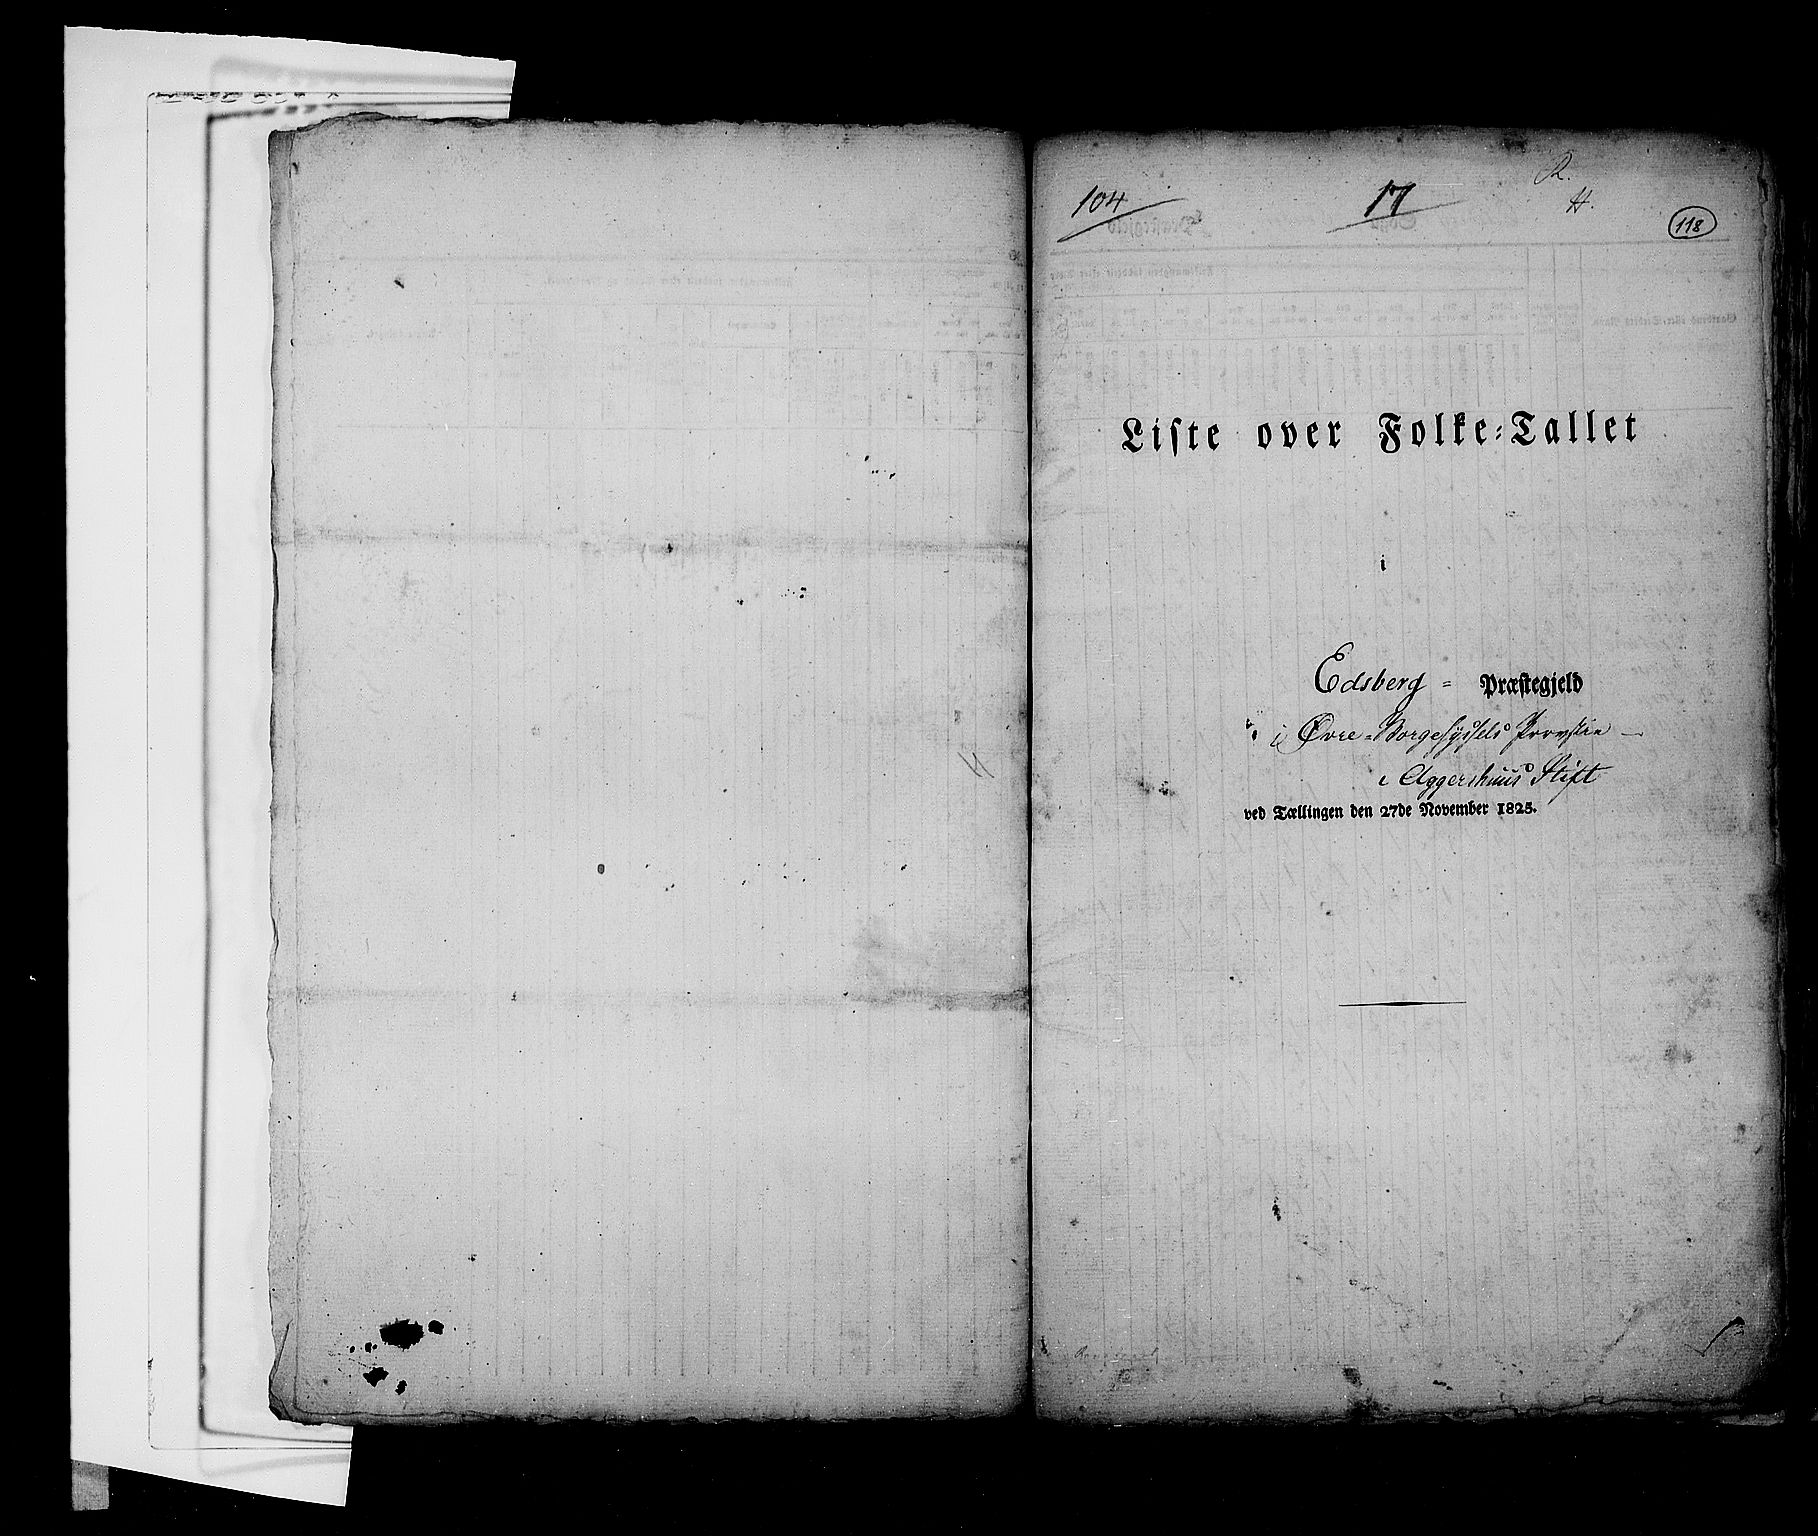 R.
104 17 H.
118
Liste over Folke-Tallet
i
Edsberg - Præstegjeld
i Øvre-Borgesyssels Provstie
i Aggershuus Stift
ved Tællingen den 27de November 1825.